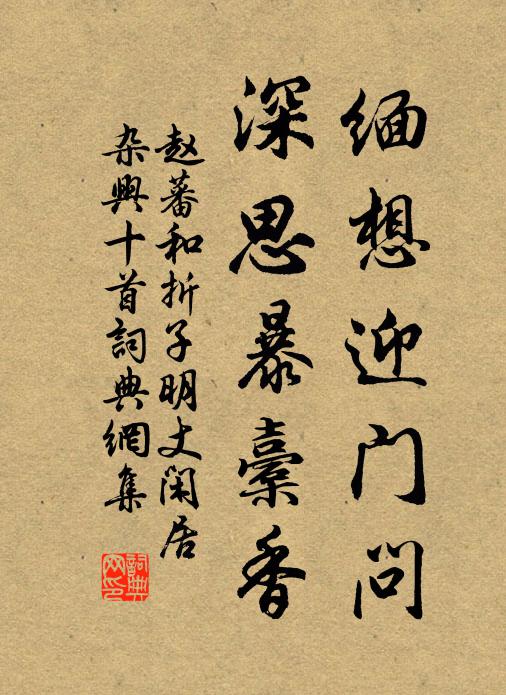 缅想迎门问
深思暴橐香
赵蕃和折子明丈闲居
杂兴十首词典网集
词典网印